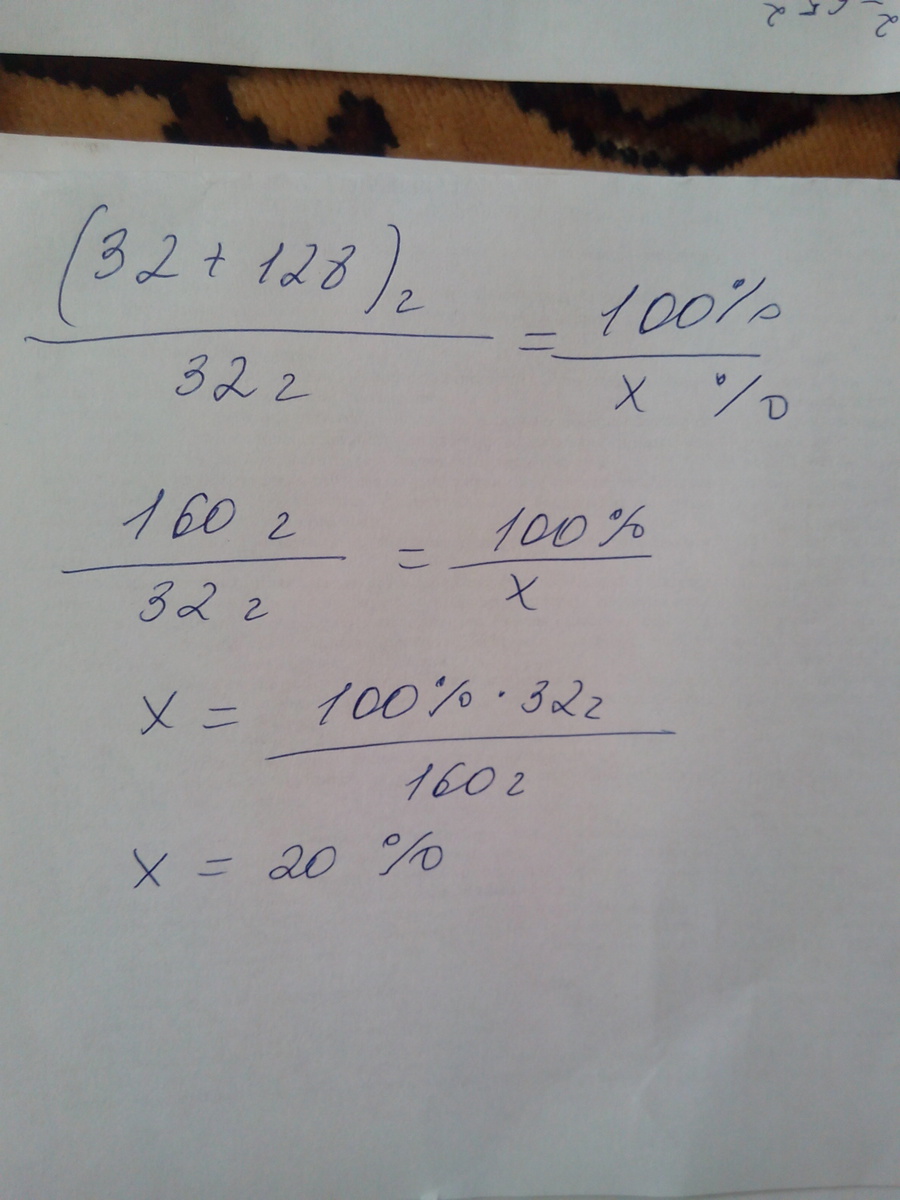 (32 + 128)г / 32 г = 100% / x %
160 г / 32 г = 100% / x
x = 100% · 32г / 160г
x = 20 %